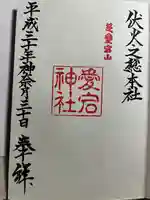 伏火之総本社
愛宕山
愛宕
神社
平成三十年神無月三十日 奉拝